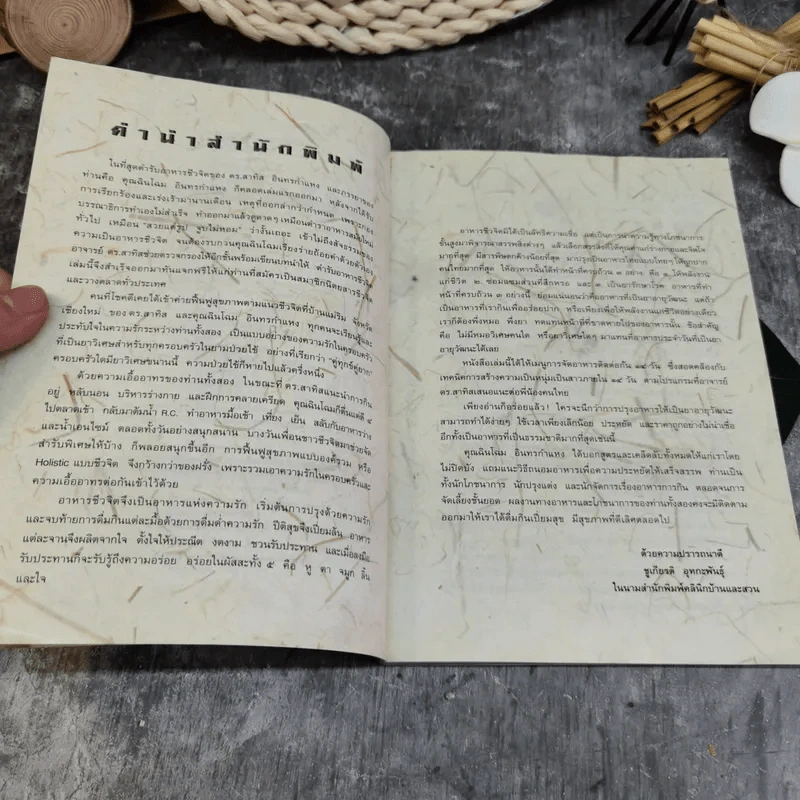 คำนำสำนักพิมพ์
ในที่สุดตำรับอาหารชีวจิตของ ดร.สาทิส อินทรกำแหง และภรรยาของ
ท่านคือ คุณฉันโฉม อินทรกำแหง ก็คลอดเล่มแรกออกมา หลังจากได้รับ
การเรียกร้องและเร่งเร้ามานานเดือน เหตุที่ออกล่ากว่ากำหนด เพราะกอง
บรรณาธิการทำเองไม่สำเร็จ ทำออกมาแล้วดูคาดๆ เหมือนตำราอาหารสมัยใหม่
ทั่วไป เหมือน "สวยแต่รูป จูบไม่หอม" ว่างั้นเถอะ เข้าไม่ถึงสัจธรรมของ
ความเป็นอาหารชีวจิต จนต้องรบกวนคุณฉันโฉมเรียงร้อยถ้อยคำด้วยตัวเอง
อาจารย์ ดร.สาทิสช่วยตรวจกรองให้อีกชั้นพร้อมเขียนบทนำให้ ตำรับอาหารชีวจิต
เล่มนี้จึงสำเร็จออกมาทันแจกฟรีให้แก่ท่านที่สมัครเป็นสมาชิกนิตยสารชีวจิต
และวางตลาดทั่วประเทศ
คนที่โชคดีเคยได้เข้าค่ายฟื้นฟูสุขภาพตามแนวชีวจิตที่บ้านแม่ริม จังหวัด
เชียงใหม่ ของ ดร.สาทิส และคุณฉันโฉม อินทรกำแหง ทุกคนจะเรียนรู้และ
ประทับใจในความรักระหว่างท่านทั้งสอง เป็นแบบอย่างของความรักในครอบครัว
ที่เป็นยาวิเศษสำหรับทุกครอบครัวในยามป่วยไข้ อย่างที่เรียกว่า "คู่ทุกข์คู่ยาก"
ครอบครัวใดมียาวิเศษขนานนี้ ความป่วยไข้ก็หายไปแล้วครึ่งหนึ่ง
ด้วยความเอื้ออาทรของท่านทั้งสอง ในขณะที่ ดร.สาทิสแนะนำการกิน
อยู่ หลับนอน บริหารร่างกาย และฝึกการคลายเครียด คุณฉันโฉมก็ตื่นแต่ตี ๔
ไปตลาดเช้า กลับมาต้มน้ำ R.C. ทำอาหารมื้อเช้า เที่ยง เย็น สลับกับอาหารว่าง
และน้ำเอนไซม์ ตลอดทั้งวันอย่างสนุกสนาน บางวันเพื่อนชาวชีวจิตมาช่วยจัด
สำรับพิเศษให้บ้าง ก็พลอยสนุกขึ้นอีก การฟื้นฟูสุขภาพแบบองค์รวม หรือ
Holistic แบบชีวจิต จึงกว้างกว่าของฝรั่ง เพราะรวมเอาความรักในครอบครัวและ
ความเอื้ออาทรต่อกันเข้าไว้ด้วย
อาหารชีวจิตจึงเป็นอาหารแห่งความรัก เริ่มต้นการปรุงด้วยความรัก
และจบท้ายการดื่มกินแต่ละมื้อด้วยการดื่มด่ำความรัก ปีติสุขจึงเปี่ยมล้น อาหาร
แต่ละจานจึงผลิตจากใจ ตั้งใจให้ประณีต งดงาม ชวนรับประทาน และเมื่อลงมือ
รับประทานก็จะรับรู้ถึงความอร่อย อร่อยในผัสสะทั้ง ๕ คือ หู ตา จมูก ลิ้น
และใจ
อาหารชีวจิตมิได้เป็นลัทธิความเชื่อ แต่เป็นการนำความรู้ทางโภชนาการ
ชั้นสูงมาพิจารณาสรรพสิ่งต่างๆ แล้วเลือกสรรสิ่งที่ให้คุณค่าแก่ร่างกายและจิตใจ
มากที่สุด มีสารพิษตกค้างน้อยที่สุด มาปรุงเป็นอาหารไทยแบบไทยๆ ให้ถูกปาก
คนไทยมากที่สุด ให้อาหารนั้นได้ทำหน้าที่ครบถ้วน ๓ อย่าง คือ ๑ ให้พลังงาน
แก่ชีวิต ๒ ซ่อมแซมส่วนที่สึกหรอ และ ๓ เป็นยารักษาโรค อาหารที่ทำ
หน้าที่ครบถ้วน ๓ อย่างนี้ ย่อมแน่นอนว่าคืออาหารที่เป็นยาอายุวัฒนะ แต่ถ้า
เป็นอาหารที่เรากินเพื่ออร่อยปาก หรือเพียงเพื่อให้พลังงานแก่ชีวิตอย่างเดียว
เราก็ต้องพึ่งหมอ พึ่งยา ทดแทนหน้าที่ที่ขาดหายไปของอาหารนั้น ข้อสำคัญ
คือ ไม่มีหมอวิเศษคนใด หรือยาวิเศษใดๆ มาแทนที่อาหารประจำวันที่เป็นยา
อายุวัฒนะได้เลย
หนังสือเล่มนี้ได้ให้เมนูการจัดอาหารติดต่อกัน ๑๔ วัน ซึ่งสอดคล้องกับ
เทคนิคการสร้างความเป็นหนุ่มเป็นสาวภายใน ๑๔ วัน ตามโปรแกรมที่อาจารย์
ดร.สาทิสเสนอแนะต่อพี่น้องคนไทย
เพียงอ่านก็อร่อยแล้ว! ใครจะนึกว่าการปรุงอาหารให้เป็นยาอายุวัฒนะ
สามารถทำได้ง่ายๆ ใช้เวลาเพียงเล็กน้อย ประหยัด และราคาถูกอย่างไม่น่าเชื่อ
อีกทั้งเป็นอาหารที่เป็นธรรมชาติมากที่สุดเช่นนี้
คุณฉันโฉม อินทรกำแหง ได้บอกสูตรและเคล็ดลับทั้งหมดให้แก่เราโดย
ไม่ปิดบัง แถมแนะวิธีถนอมอาหารเพื่อความประหยัดให้เสร็จสรรพ ท่านเป็น
ทั้งนักโภชนาการ นักปรุงแต่ง และนักจัดการเรื่องอาหารการกิน ตลอดจนการ
จัดเลี้ยงชั้นยอด ผลงานทางอาหารและโภชนาการของท่านทั้งสองคงจะมีติดตาม
ออกมาให้เราได้ดื่มกินเปี่ยมสุข มีสุขภาพที่ดีเลิศตลอดไป
ด้วยความปรารถนาดี
ชูเกียรติ อุทกะพันธุ์
ในนามสำนักพิมพ์คลินิกบ้านและสวน